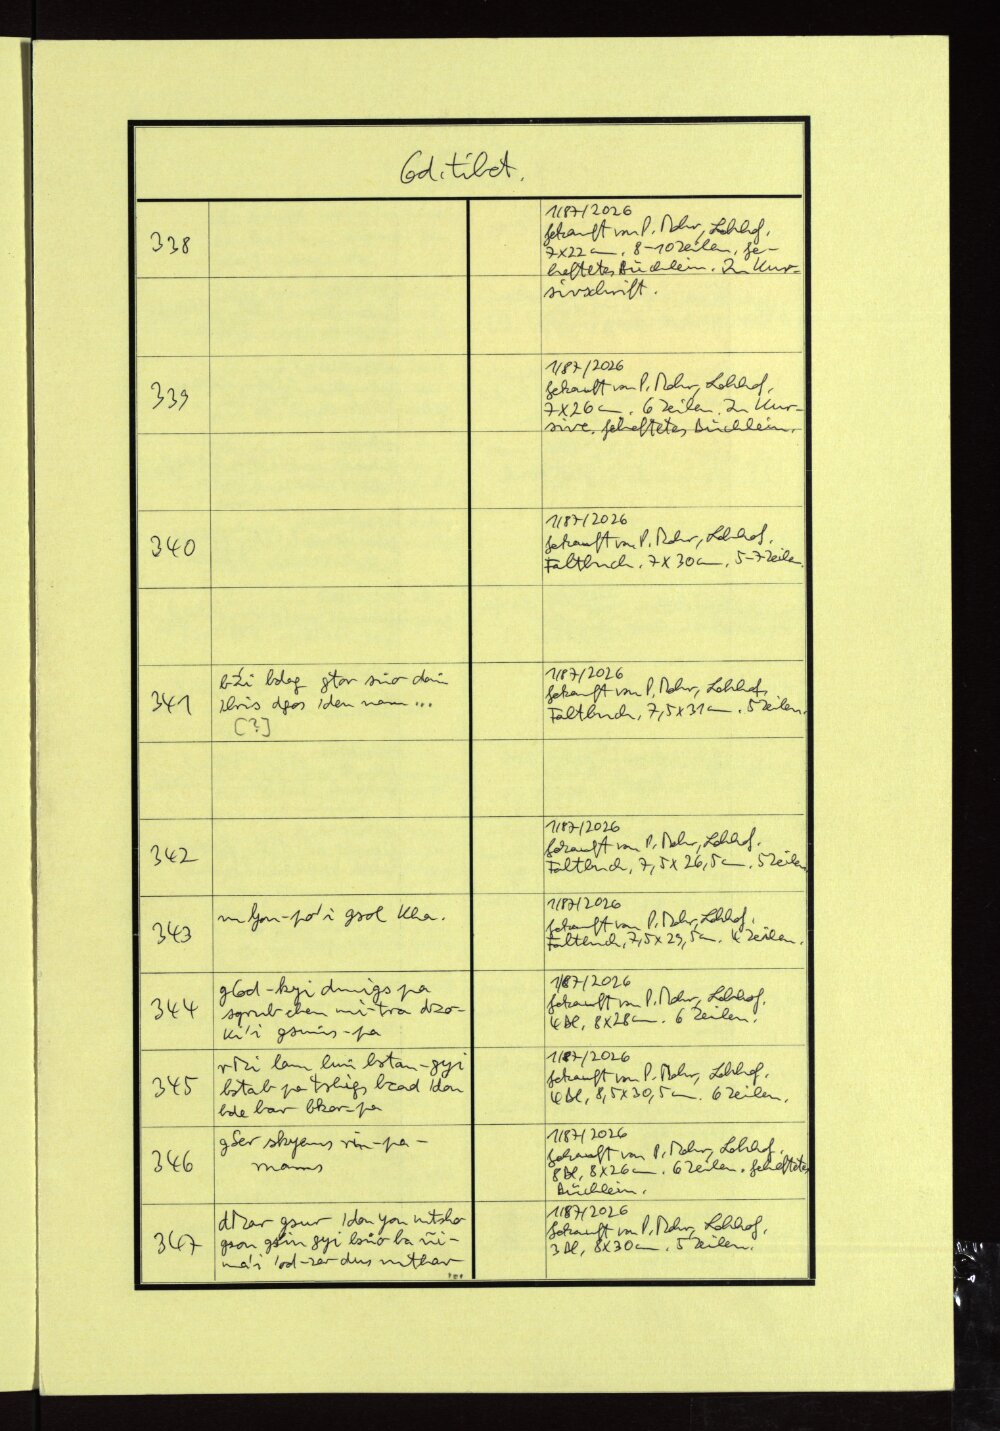 Cod. tibet.
338
1/87/2026
gekauft von P. Mohr, Lohhof.
7x22cm. 8-10 Zeilen, ge-
heftetes Büchlein. In Kur-
sivschrift.
339
1/87/2026
gekauft von P. Mohr, Lohhof.
7x26cm. 6 Zeilen. In Kur-
sive, geheftetes Büchlein.
340
1/87/2026
gekauft von P. Mohr, Lohhof.
Faltbuch, 7x30cm, 5-7 Zeilen
341
bži bdag gtor
bris dgos 'den nam ...
[?]
1/87/2026
gekauft von P. Mohr, Lohhof.
Faltbuch, 7,5x31cm. 5 Zeilen.
342
1/87/2026
gekauft von P. Mohr, Lohhof.
Faltbuch, 7,5x26,5cm. 5 Zeilen
343
mgon-po'i gsol kha.
1/87/2026
gekauft von P. Mohr, Lohhof.
Faltbuch, 7,5x29,5cm. 4 Zeilen.
344
gCod-kyi dmigs pa
sgrub chen mi-tra dzo-
ki'i gsuṅs-pa
1/87/2026
gekauft von P. Mohr, Lohhof.
4 Bl, 8x28cm. 6 Zeilen.
345
lam luṅ bstan-gyi
bstab pa tshigs bcad 'don
bde bar bkor-pa
1/87/2026
gekauft von P. Mohr, Lohhof.
4 Bl, 8,5x30,5cm. 6 Zeilen.
346
gSer skyems rim-pa-
rnams
1/87/2026
gekauft von P. Mohr, Lohhof.
8 Bl, 8x26cm. 6 Zeilen. geheftetes
Büchlein.
347
dKar gsur 'dod yon mtsho
gson gśin gyi bsṅo ba ñi-
ma'i 'od-zer dus mthar
...
1/87/2026
gekauft von P. Mohr, Lohhof.
3 Bl, 8x30cm. 5 Zeilen.